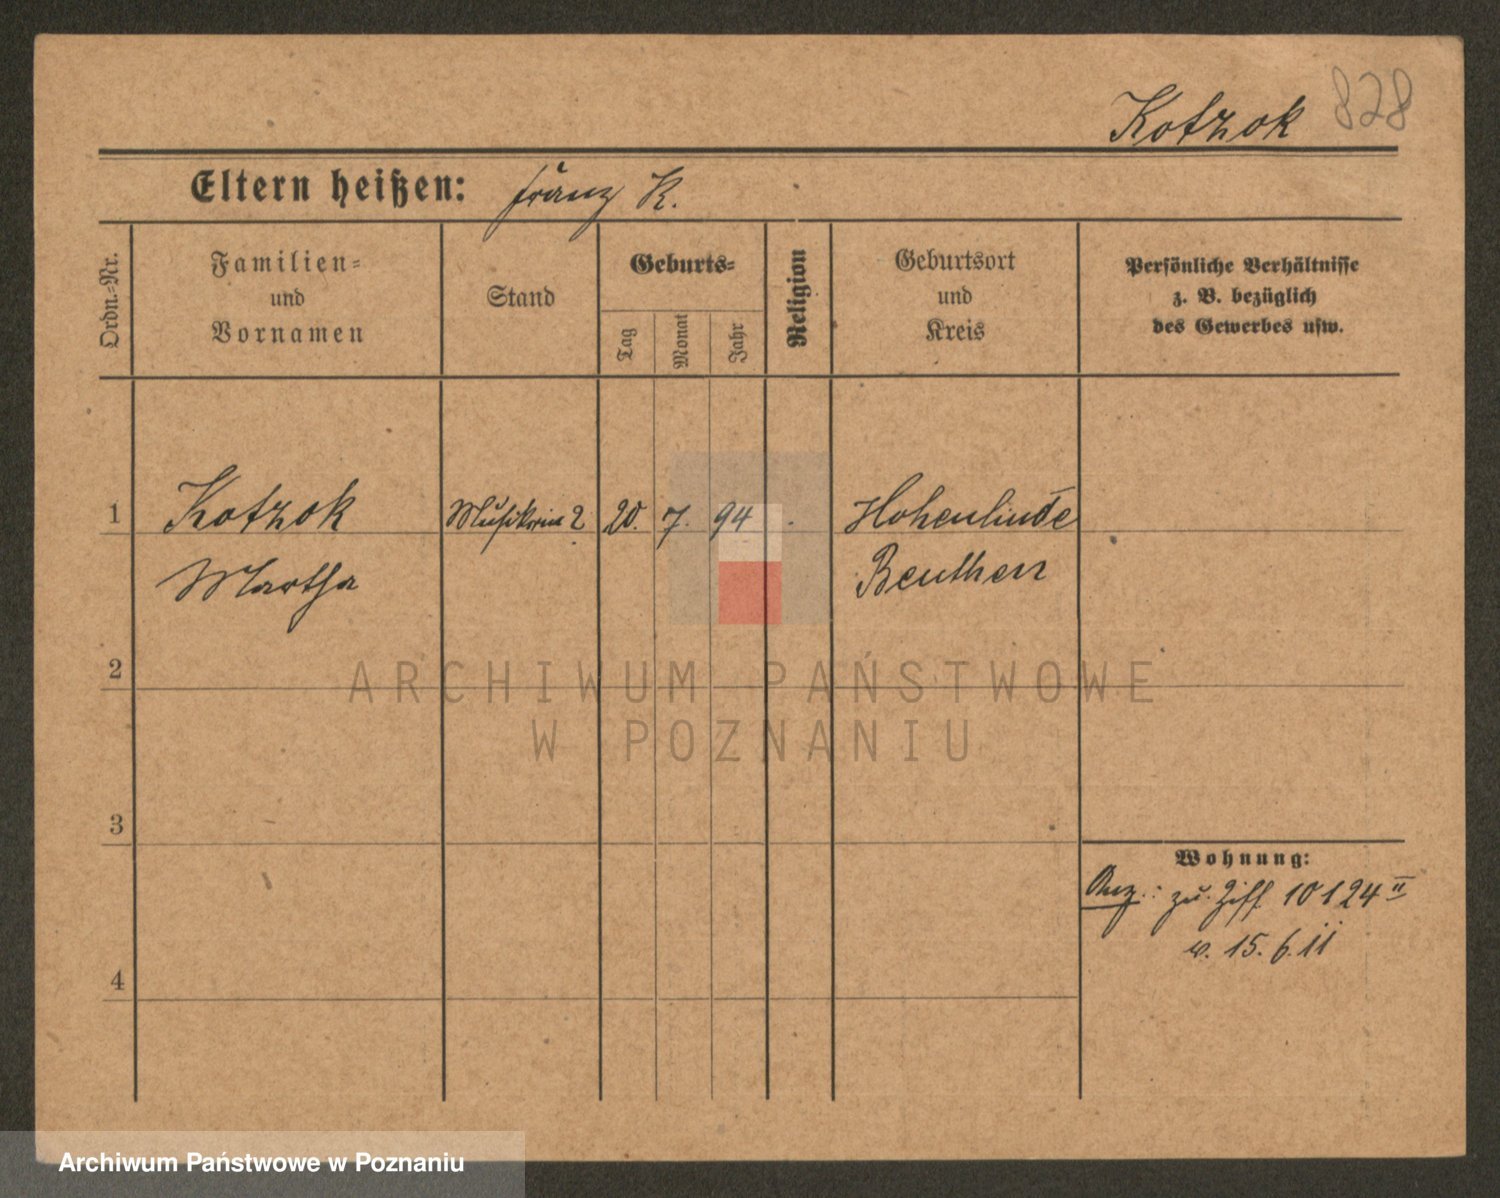 Kotzok 828
Eltern heißen: Franz K.
Ordn.-Nr.
Familien-
und
Vornamen
Stand
Geburts-
Tag
Monat
Jahr
Religion
Geburtsort
und
Kreis
Persönliche Verhältnisse
z. B. bezüglich
des Gewerbes usw.
1 Kotzok Musikerin ? 20. 7. 94 . Hohenlinde
Martha Beuthen
2
ARCHIWUM PAŃSTWOWE
W POZNANIU
3
Wohnung:
Anz.: zu Ziff. 10124 II
v. 15. 6. 11
4
Archiwum Państwowe w Poznaniu